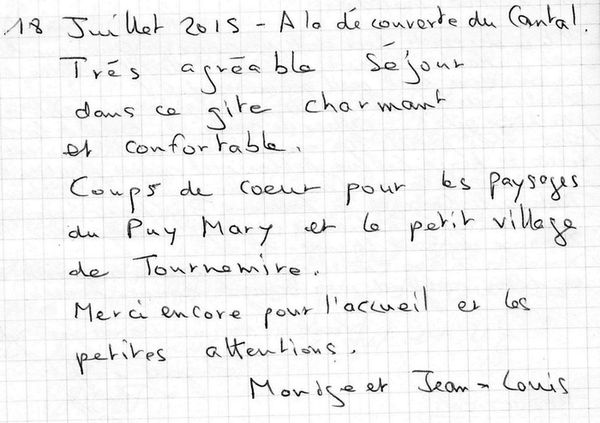 18 Juillet 2015 - A la découverte du Cantal.
Trés agréable séjour
dans ce gite charmant
et confortable.
Coups de coeur pour les paysages
du Puy Mary et le petit village
de Tournemire.
Merci encore pour l'accueil et les
petites attentions.
et Jean-Louis